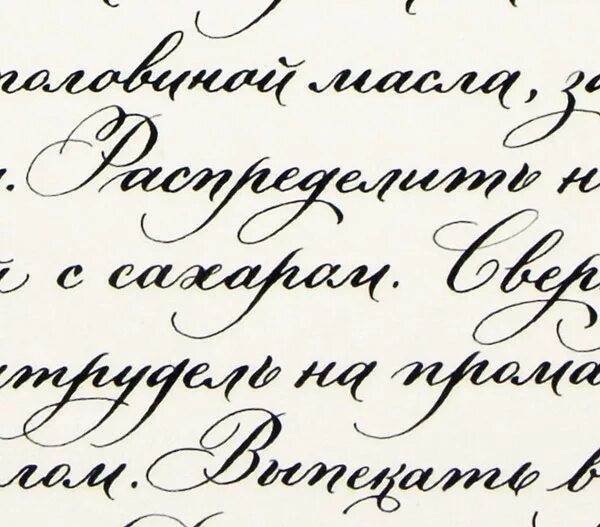 половиной масла, за
. Распределить н
й с сахаром. Свер
трудель на прома
лом. Выпекать в